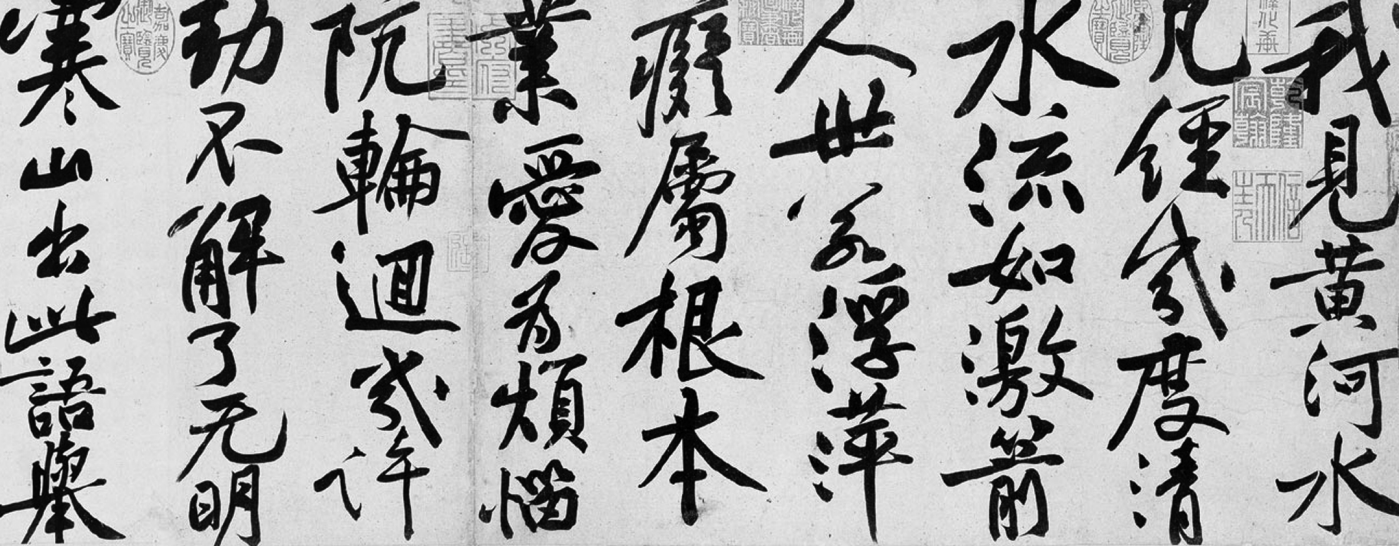 我見黃河水
凡經幾度清
水流如激箭
人世若浮萍
癡屬根本
業愛為煩惱
阬輪迴幾許
劫不解了无明
寒山出此語舉